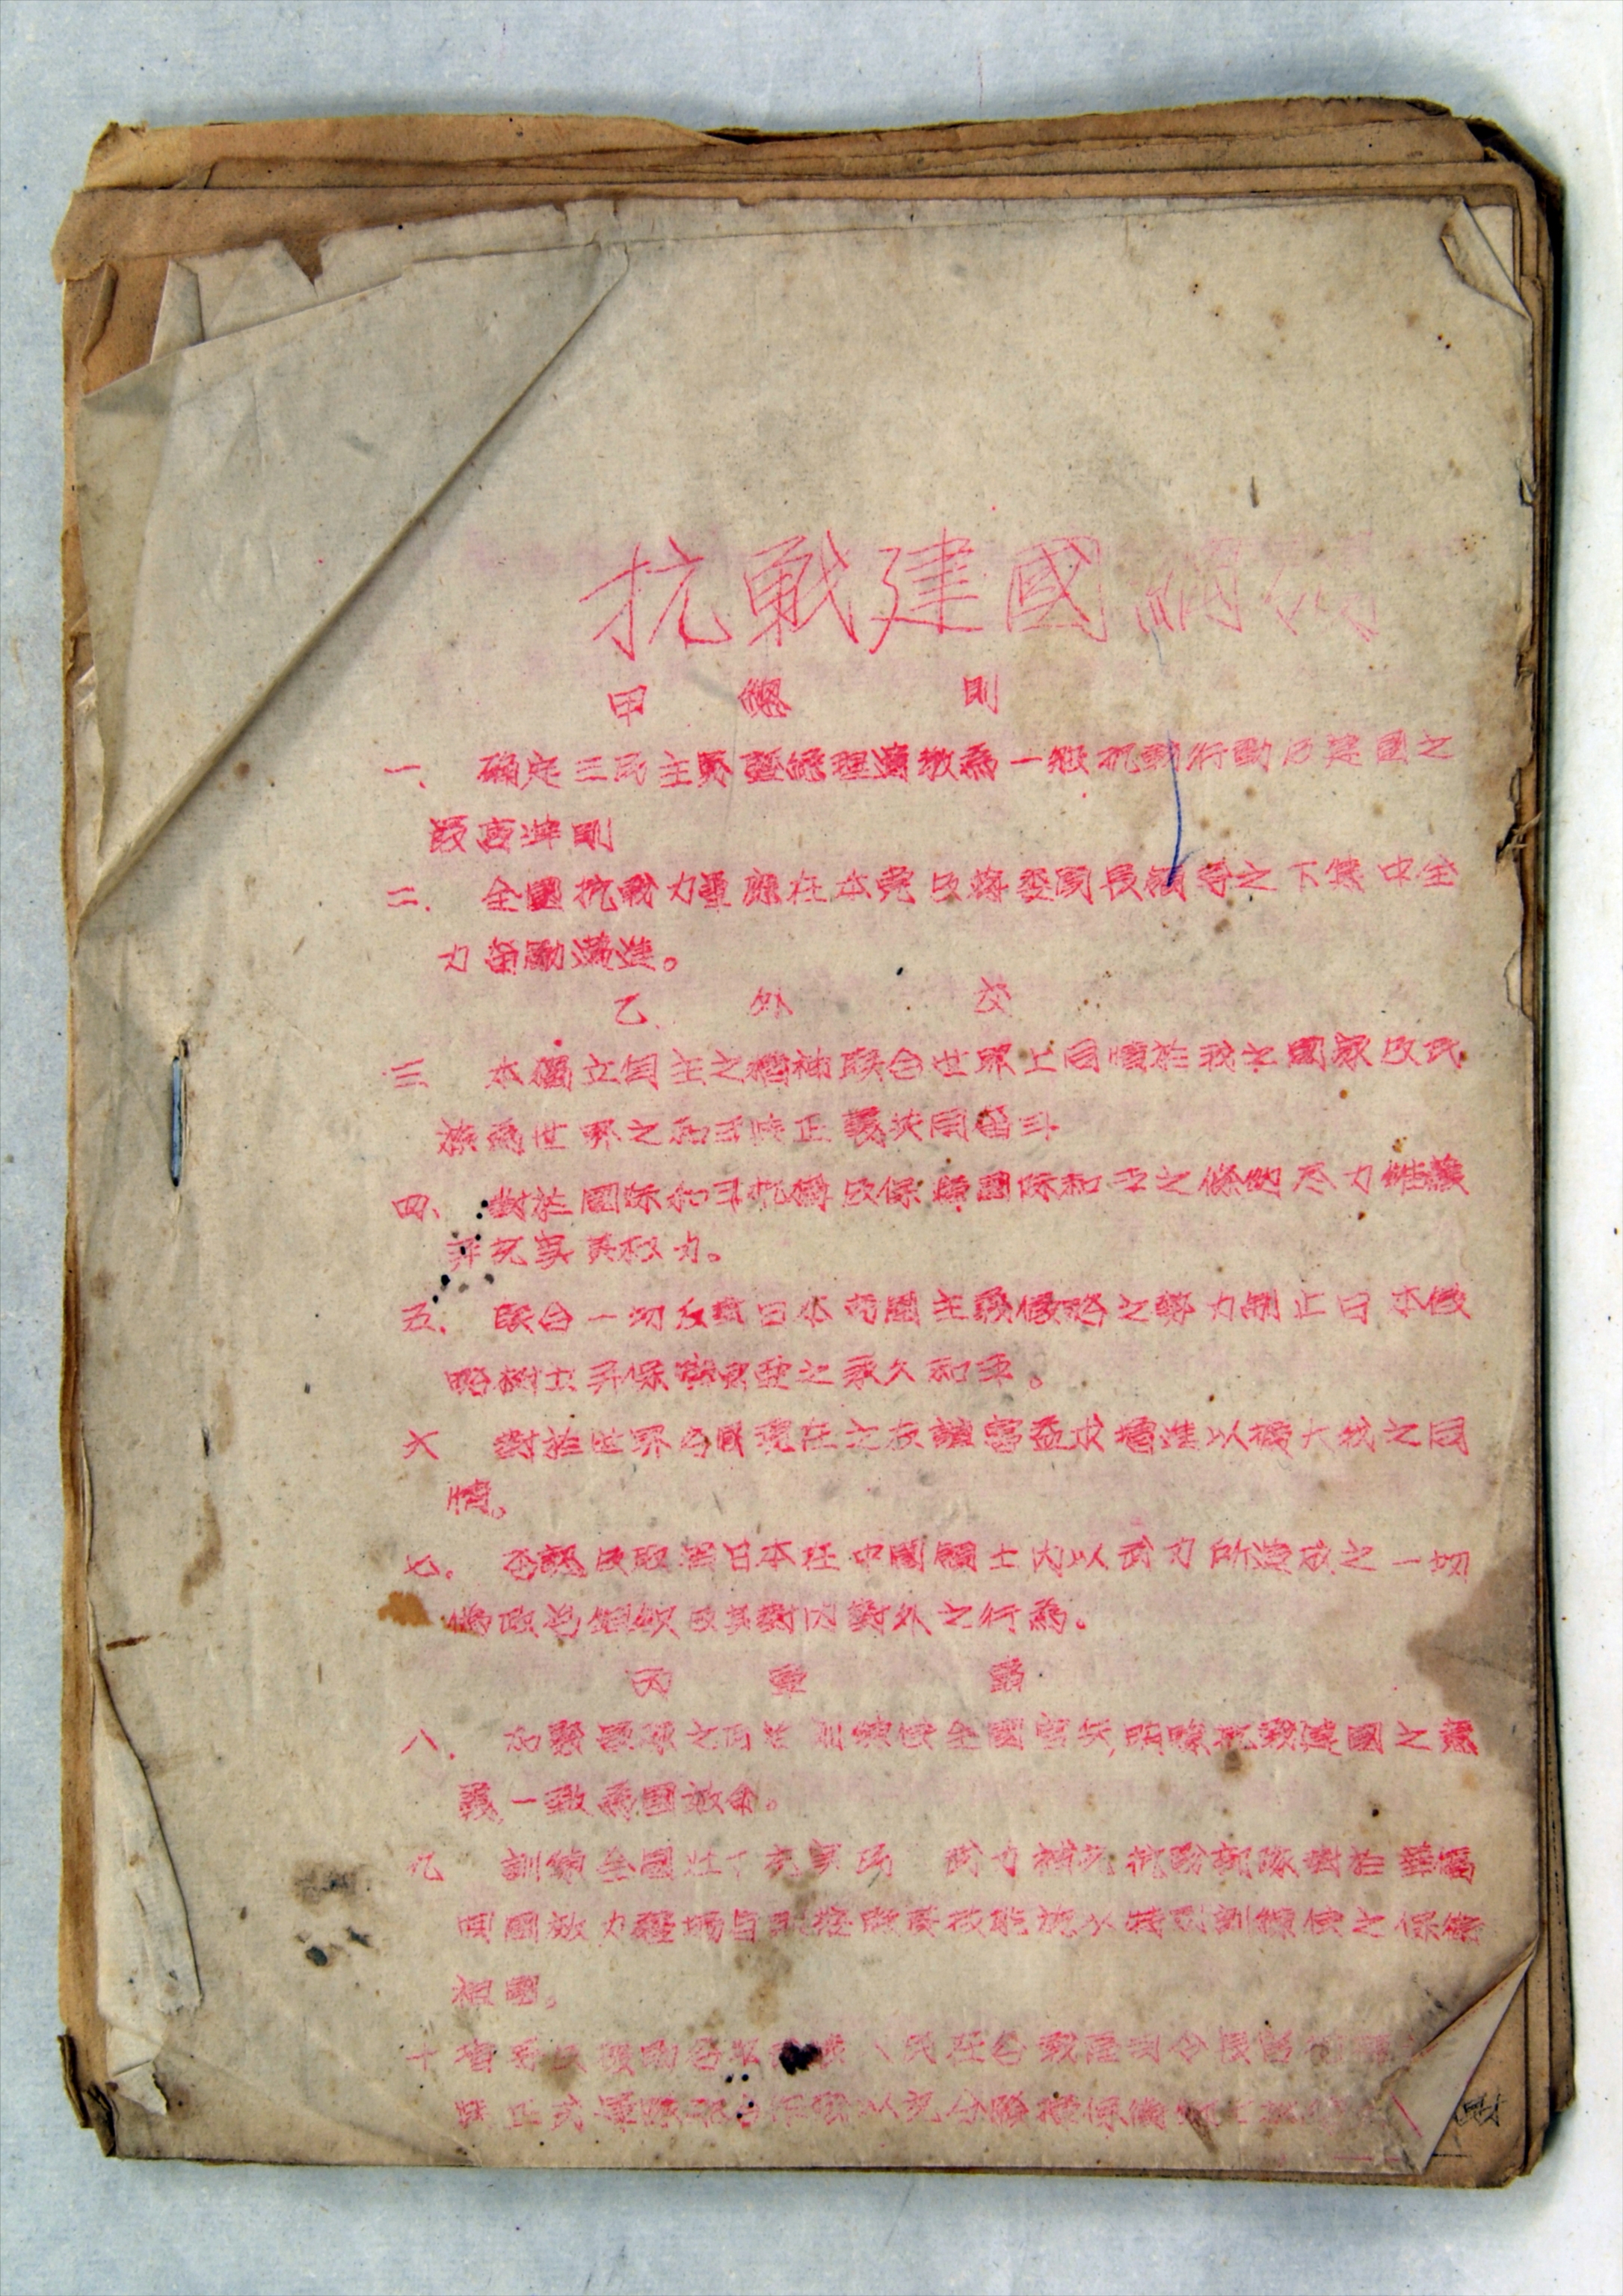 抗戰建國綱領
甲 總 則
一、確定三民主義暨總理遺教為一般抗戰行動及建國之
最高準則
二、全國抗戰力量應在本党及蔣委員長領導之下集中全
力奮勵邁進。
乙、外 交
三 本獨立自主之精神联合世界上同情於我之國家及民
族為世界之和平與正義共同奮斗
四、對於國际和平机構及保障國际和平之條約尽力維護
并充实其权力。
五、联合一切反對日本帝國主義侵略之勢力制止日本侵
略樹立并保障東亞之永久和平。
六 對於世界各國現存之友誼當益求增進以擴大我之同
情。
七、否認及取消日本在中國領土内以武力所造成之一切
偽政治組織及其對内對外之行為。
丙 軍 事
八、加緊軍隊之政治訓練使全國官兵明瞭抗戰建國之意
義一致為國效命。
九 訓練全國壯丁充实民 武力補充抗战部隊對於華僑
回國效力疆場者則按照其技能施以特殊訓練使之保衛
祖國。
十 指导及援助各地武裝人民在各戰區司令長官指揮之
與正式軍隊配合作戰以充分發揮保衛